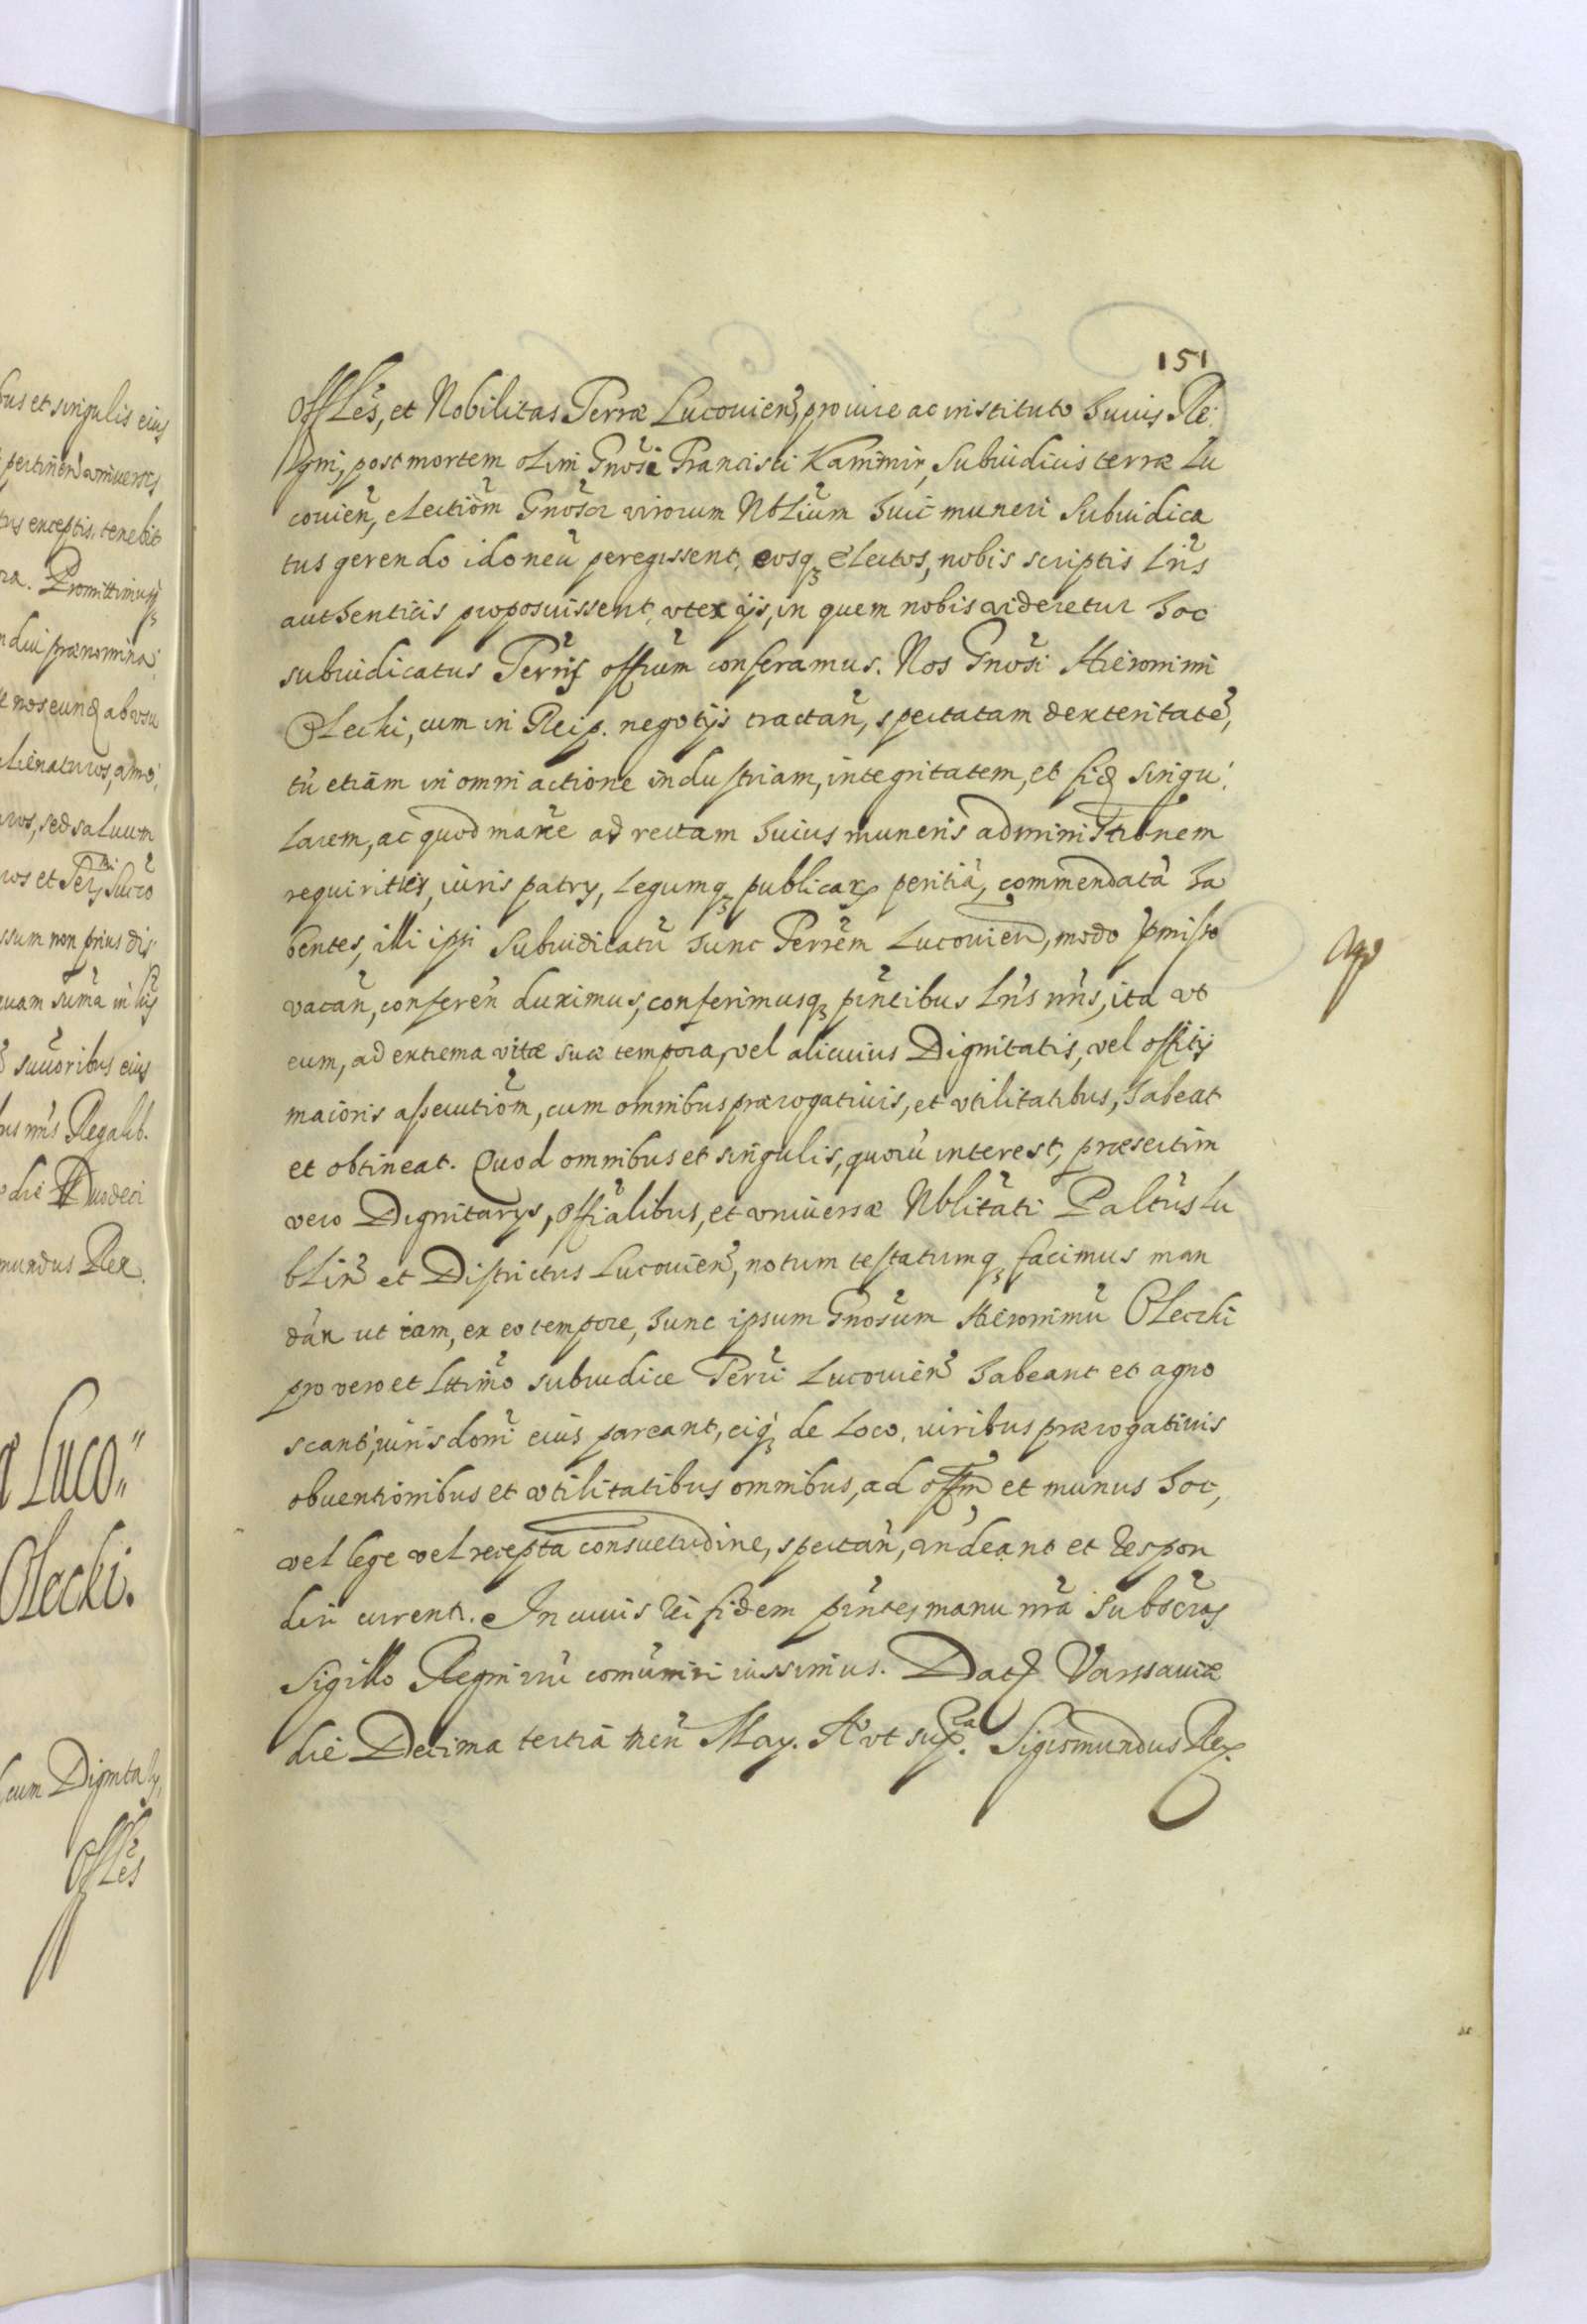 bus et singulis eius
pertinen̄ vniuersis
exceptis, tenebit
Promittimusq́ꝫ
prænomina
nos eund ab vsu
alienaturos, amo
sed saluum
ros et
ssum non prius dis
quam
suꝯoribus eius
Regalib.
die Duodeci
mundus Rex.
Luco"
Olecki.
cum Dignitarÿ,
Offles
151
Offles, et Nobilitas Terræ Lucouien̄, pro iure ac instituto huius Re
gni, post mortem olim Gnosi Francisci Kazimir, Subiudicis terræ Lu
couien̄, electiōm Gnosoꝝ virorum Nbliūm huic muneri Subiudica
tus gerendo idoneū peregissent, eosqꝫ electos, nobis scriptis Lris
authenticis proposuissent, vt ex ijs, in quem nobis videretur hoc
subiudicatus Terris offium conferamus. Nos Gnosi Hieronimi
Olecki, cum in Reip. negotijs tractan̄, spectatam dexteritatē,
tū etiam in omni actione industriam, integritatem, et fid singu
larem, ac quod maxe ad rectam huius muneris administrōnem
requiritur, iuris patrÿ, Legumqꝫ publicaꝝ peritiā, commendatā ha
bentes, illi ipsi Subiudicatū hunc Terrēm Lucouien̄, modo pmisso
vacan̄, conferen̄ duximus, conferimusqꝫ pn̄tibus Lris nr̄is, ita vt
eum, ad extrema vitæ suæ tempora, vel alicuius Dignitatis, vel offitÿ
maioris assecutiōm, cum omnibus prærogatiuis, et vtilitatibus, habeat
et obtineat. Quod omnibus et singulis, quorū interest, præsertim
vero Dignitarÿs, offialibus, et vniuersæ Nblitāti Paltūs Lu
blin̄ et Districtus Lucouien̄, notum testatumqꝫ facimus man
dan̄ ut iam, ex eo tempore, hunc ipsum Gnosūm Hieronimū Oleczki
pro vero et Lttimo subiudice Terri Lucouien̄ habeant et agno
scant, iurisdoni eius pareant, eiqꝫ de Loco, viribus prærogatiuis
obuentionibus et vtilitatibus omnibus, ad offm et munus hoc,
vel lege vel recepta consuetudine, spectan̄, rn̄deant et respon
deri curent. In cuius rei fidem pn̄tes manu nr̄a subscrās
Sigillo Regni nr̄i comuniri iussimus. Dat Varssauiæ
die Decima tertia men̄ May. Aº vt supᵃ. Sigismundus Rex